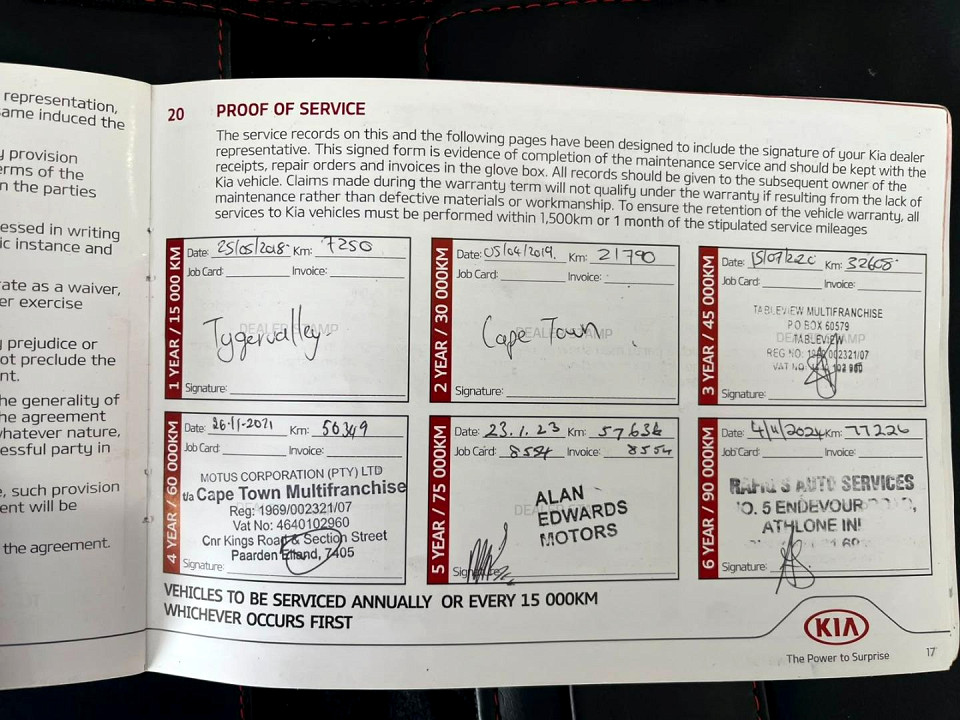 representation,
ame induced the
y provision
erms of the
n the parties
essed in writing
ic instance and
rate as a waiver,
er exercise
y prejudice or
ot preclude the
nt.
he generality of
he agreement
whatever nature,
essful party in
e, such provision
ent will be
the agreement.
20 PROOF OF SERVICE
The service records on this and the following pages have been designed to include the signature of your Kia dealer
representative. This signed form is evidence of completion of the maintenance service and should be kept with the
receipts, repair orders and invoices in the glove box. All records should be given to the subsequent owner of the
Kia vehicle. Claims made during the warranty term will not qualify under the warranty if resulting from the lack of
maintenance rather than defective materials or workmanship. To ensure the retention of the vehicle warranty, all
services to Kia vehicles must be performed within 1,500km or 1 month of the stipulated service mileages
1 YEAR / 15 000 KM
Date: 25/05/2018 Km: 7250
Job Card: Invoice:
DEALER STAMP
Tygervalley
Signature:
2 YEAR / 30 000KM
Date: 05/04/2019. Km: 21790
Job Card: Invoice:
DEALER STAMP
Cape Town
Signature:
3 YEAR / 45 000KM
Date: Km: 32608
Job Card: Invoice:
TABLEVIEW MULTIFRANCHISE
P O BOX 60579
TABLEVIEW
REG NO. 002321/07
VAT NO.
Signature:
4 YEAR / 60 000KM
Date: 26-11-2021 Km: 50349
Job Card: Invoice:
MOTUS CORPORATION (PTY) LTD
t/a Cape Town Multifranchise
Reg: 1969/002321/07
Vat No: 4640102960
Cnr Kings Road & Section Street
Paarden Eiland, 7405
Signature:
5 YEAR / 75 000KM
Date: 23.1.23 Km: 57634
Job Card: 8554 Invoice: 8554
ALAN
EDWARDS
MOTORS
6 YEAR / 90 000KM
Date: 4/11/2024 Km: 77226
Job Card: Invoice:
AUTO SERVICES
5 ENDEVOUR
ATHLONE
Signature:
VEHICLES TO BE SERVICED ANNUALLY OR EVERY 15 000KM
WHICHEVER OCCURS FIRST
KIA
The Power to Surprise
17